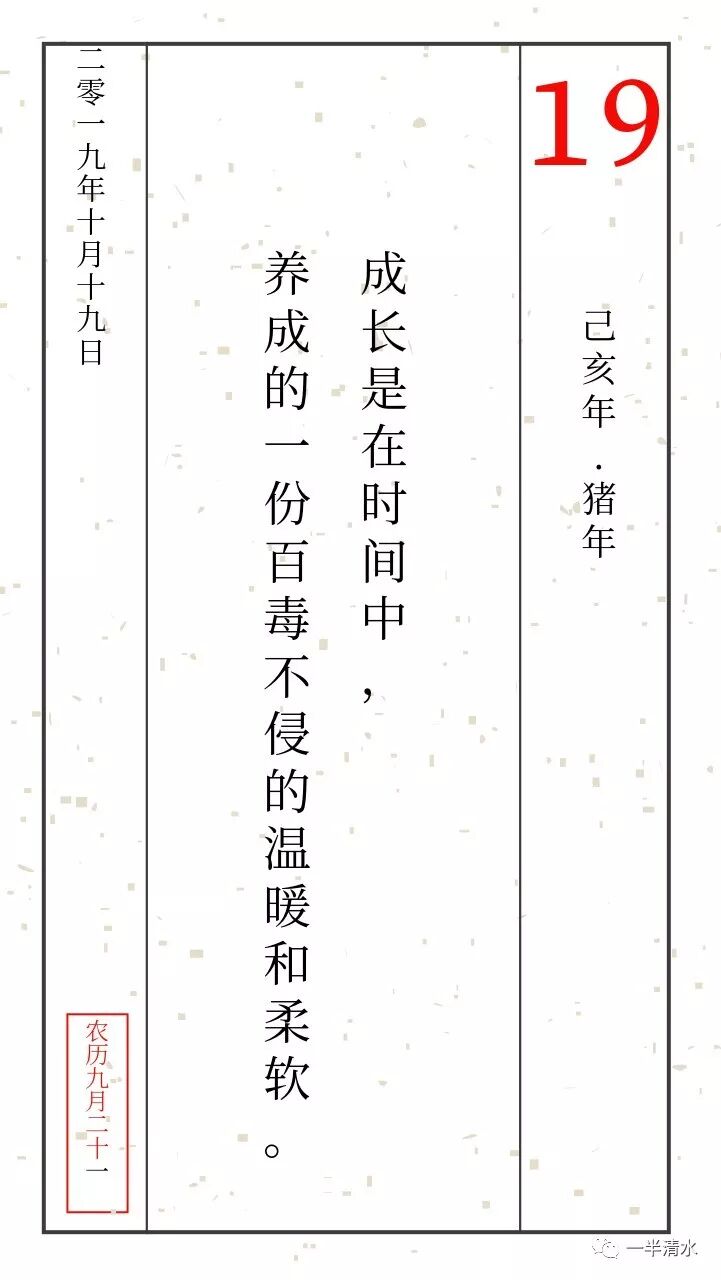 19
己亥年·猪年
成长是在时间中，
养成的一份百毒不侵的温暖和柔软。
二零一九年十月十九日
农历九月二十一
一半清水